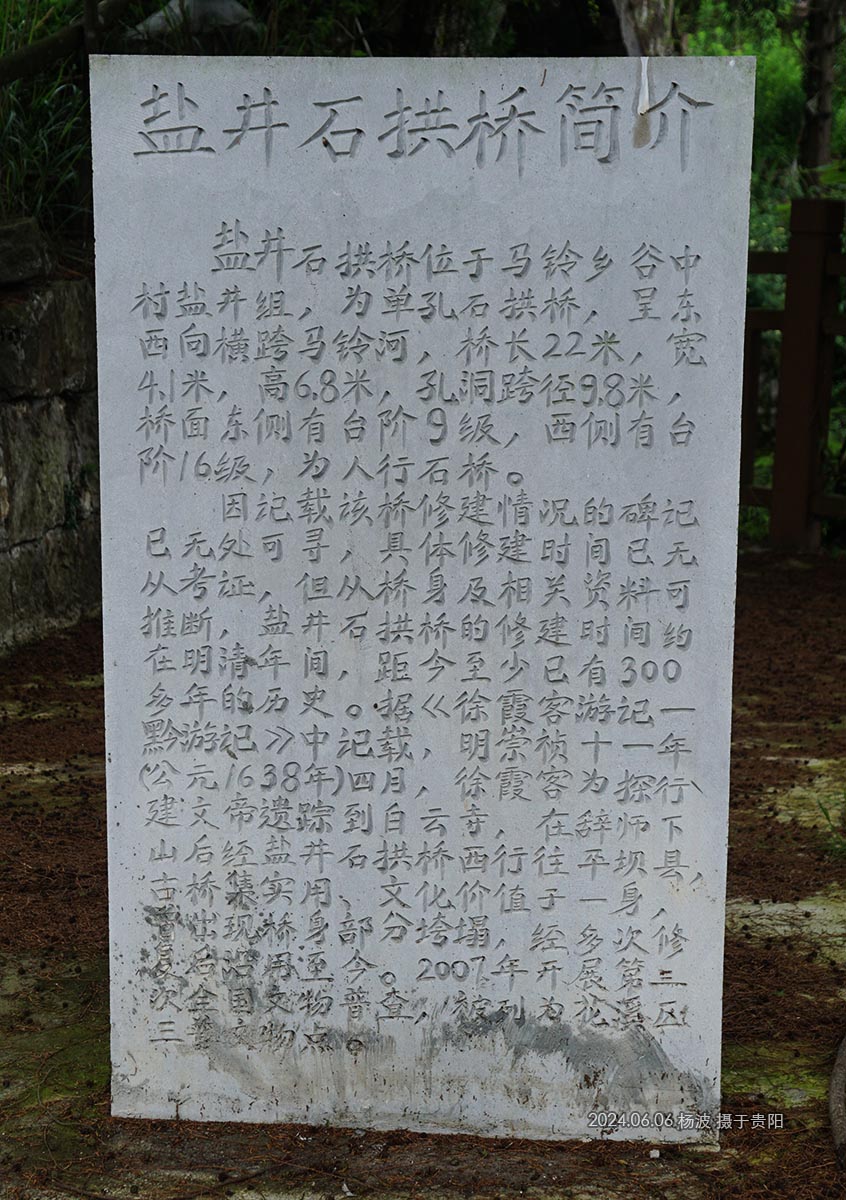 盐井石拱桥简介
盐井石拱桥位于马铃乡谷中
村盐井组,为单孔石拱桥,呈东
西向横跨马铃河,桥长22米,宽
4.1米,高6.8米,孔洞跨径9.8米,
桥面东侧有台阶9级,西侧有台
阶16级,为人行石桥。
因记载该桥修建情况的碑记
已无处可寻,具体修建时间已无
从考证,但从桥身及相关资料可
推断,盐井石拱桥的修建时间约
在明清年间,距今至少已有300
多年的历史。据《徐霞客游记一
黔游记》中记载,明崇祯十一年
(公元1638年)四月,徐霞客为探行
建文帝遗踪到白云寺,在辞师下
山后经盐井石拱桥西行往平坝县,
古桥集实用、文化价值于一身,
曾出现桥身部分垮塌,经多次修
复后沿用至今。2007年开展第三
次全国文物普查,被列为花溪区
三普文物点。
2024.06.06 杨波 摄于贵阳